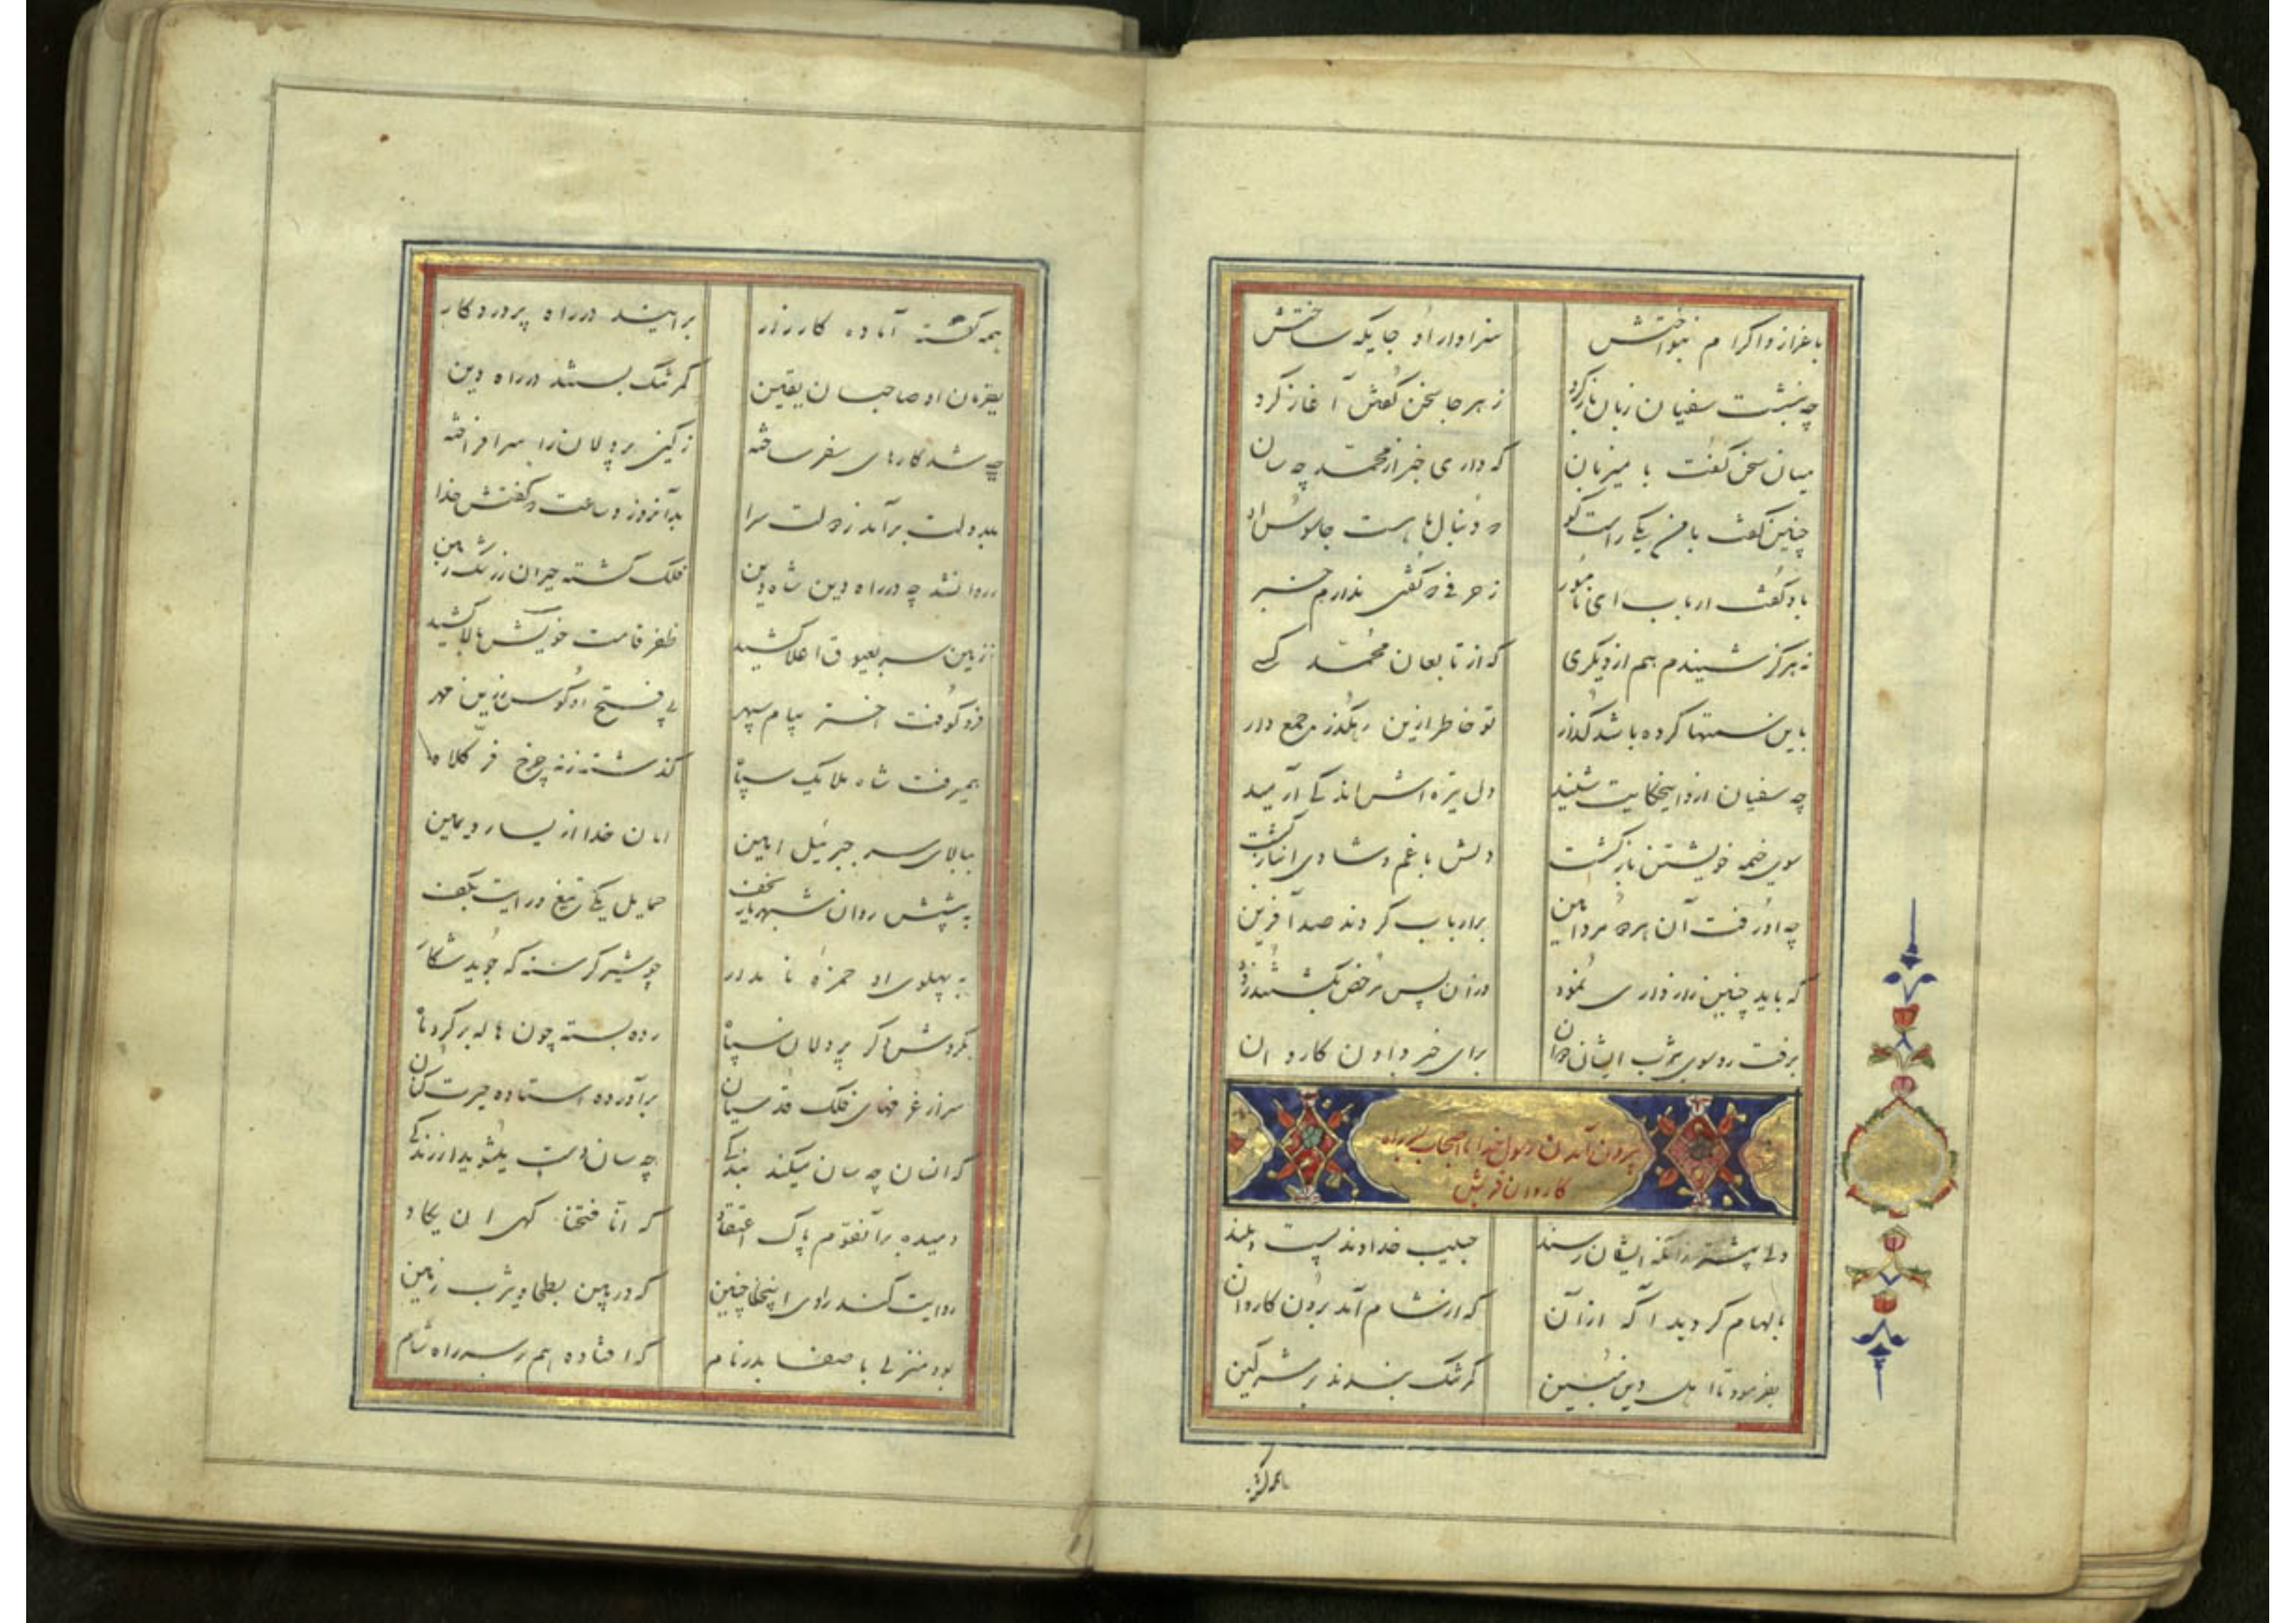 باعزاز و اکرام بنواختش سزاوار او جایکه ساختش
چه بنشست سفیان زبان باز کرد ز هر جا سخن گفتن آغاز کرد
میان سخن گفت با میزبان که داری خبر از محمّد چه سان
چنین گفت با من یکی راست گو به دنبال ما هست جاسوس او
باو گفت ارباب ای نامور ز حرفی که گفتی ندارم خبر
نه هرگز شنیدم هم از دیگری که از تابعان محمّد کسی
باین سمتها کرده باشد گذار تو خاطر ازین رهگذر جمع دار
چه سفیان ازو اینحکایت شنید دل تیره اش اندکی آرمید
سوی خیمه خویشتن بازگشت دلش با غم و شادی انباز گشت
چه او رفت آن هر دو مرد امین بر ارباب کردند صد آفرین
که باید چنین رازداری نمود وز آن پس مرخص بگشتند زود
برفت رو سوی یثرب ایشان دوان برای خبر دادن کاروان
بیرون آمدن رسول خدا با اصحاب بسر راه
کاروان قریش
ولی پیشتر زانکه ایشان رسند حبیب خداوند پست و بلند
بالهام گردید آگه از آن که از شام آمد برون کاروان
بفرمود تا اهل دین مبین کمر تنک بندند بر مشرکین
همه گشته
همه گشته آماده کارزار برآیند در راه پروردکار
بفرمان او صاحبان یقین کمر تنک بستند در راه دین
چه شد کارهای سفر ساخته ز کین پردلان را سر افراخته
بدولت برآمد ز دولت سرا بدآنروز و ساعت که گفتش خدا
روانشد چه در راه دین شاه دین فلک گشته حیران ز رشک زمین
زمین سر بعیوق اعلا کشید ظفر قامت خویش بالا کشید
فرو کوفت اختر ببام سپهر پی فتح او کوس زرین مهر
همیرفت شاه ملایک سپاه گذشته ز نه چرخ فرّ کلاه
ببالای سر جبرئیل امین امان خدا از یسار و یمین
به پیشش روان شهریار نجف حمایل یکی تیغ و رایت بکف
به پهلوی او حمزه نامدار چو شیر گرسنه که جوید شکار
بگردش دگر پردلان سپاه رده بسته چون هاله بر گرد ماه
سر از غرفهای فلک قدسیان برآورده استاده حیرت کنان
که انسان چه سان میکند بندکی چه سان دست میشوید از زندکی
دمیده بر آنقوم پاک اعتقاد که انّا فتحنا کهی ان یکاد
روایت کند راوی اینجا چنین که در بین بطحا و یثرب زمین
بود منزلی با صفا بدر نام که افتاده هم بر سر راه شام